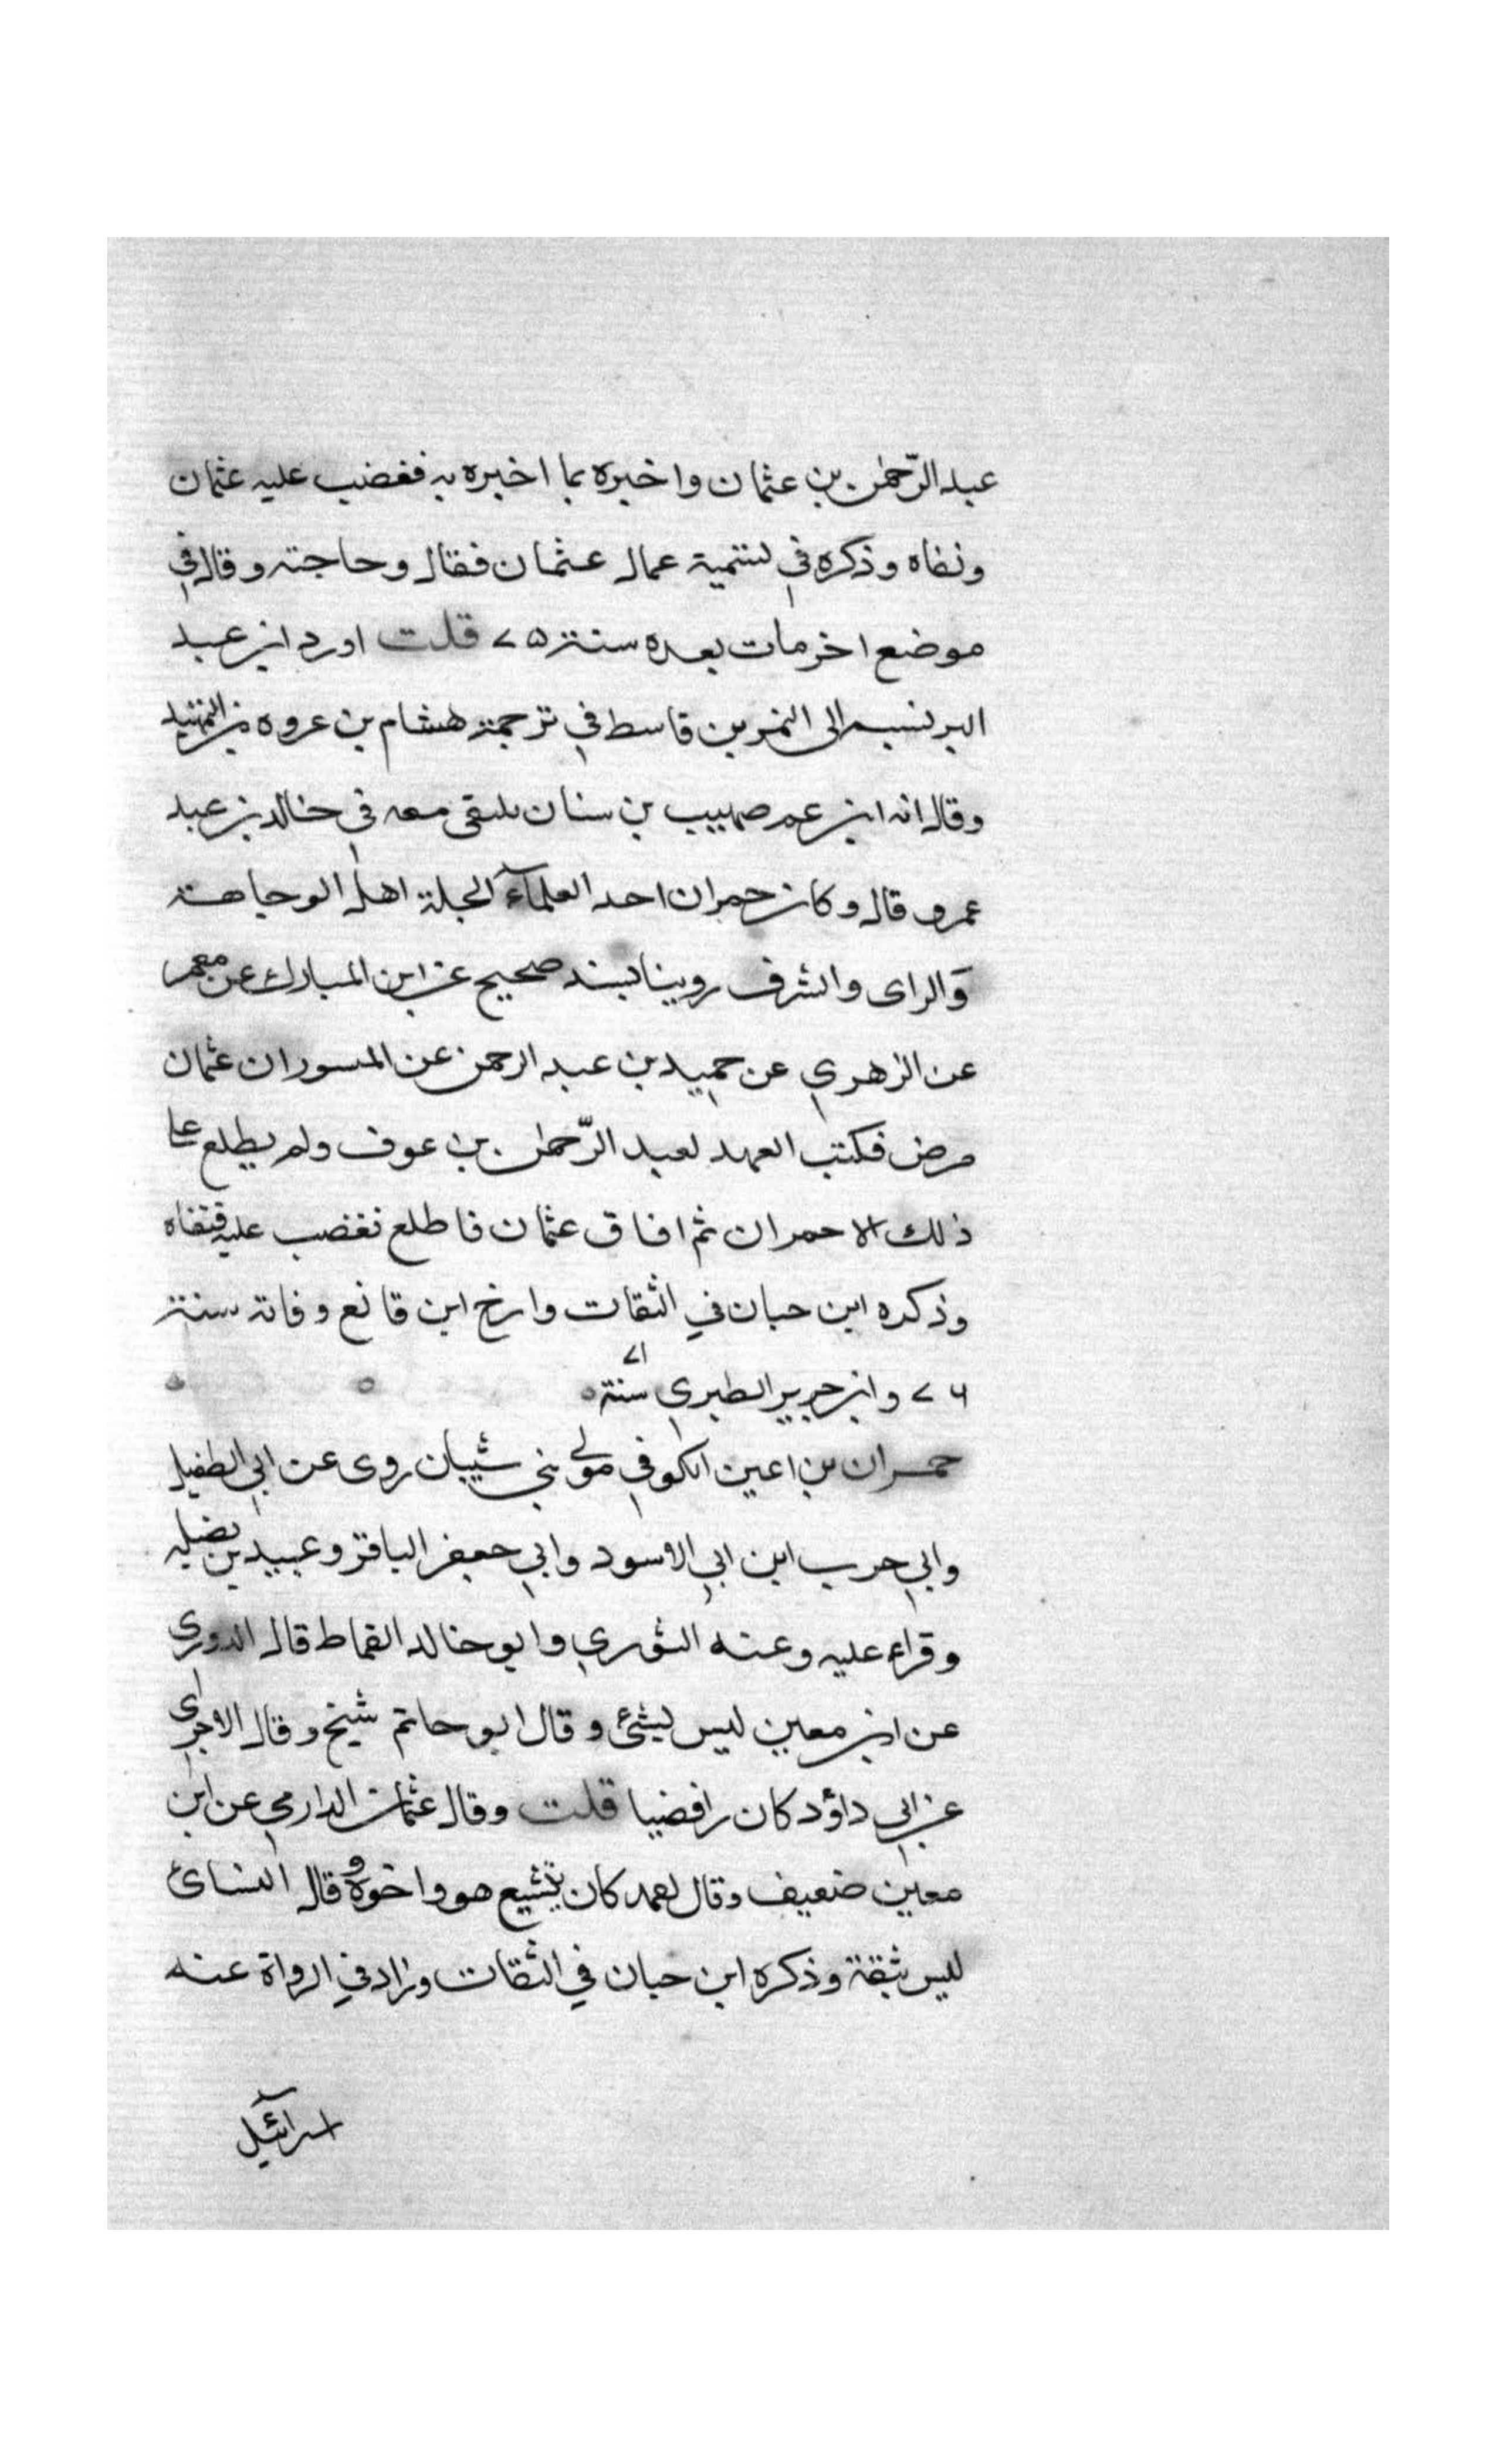 عبد الرّحمٰن بن عثمان واخبره بما اخبره به فغضب عليه عثمان
ونفاه وذكره في تسمية عمال عثمان فقال وحاجته وقال في
موضع اخر مات بعده سنة ٧٥ قلت اورد ابن عبد
البر نسبه الى النمر بن قاسط في ترجمة هشام بن عروه من التمهيد
وقال انه ابن عم صهيب بن سنان يلتقى معه في خالد بن عبد
عمرو قال وكان حمران احد العلمآء الجلة اهل الوجاهة
والراى والشرف روينا بسند صحيح عن ابن المبارك عن معمر
عن الزهري عن حميد بن عبد الرحمن عن المسور ان عثمان
مرض فكتب العهد لعبد الرّحمٰن بن عوف ولم يطلع على
ذلك الا حمران ثم افاق عثمان فاطلع فغضب عليه فنفاه
وذكره ابن حبان في الثقات وارخ ابن قانع وفاته سنة
٧٦ وابن جرير الطبري سنة ٧١
حمران بن اعين الكوفي مولى بني شيبان روى عن ابي الطفيل
وابي حرب ابن ابي الاسود وابي جعفر الباقر وعبيد بن نضله
وقراء عليه وعنه الثوري وابو خالد القماط قال الدورى
عن ابن معين ليس بشئ وقال ابو حاتم شيخ وقال الاجرى
عن ابي داؤد كان رافضيا قلت وقال عثمان الدارمي عن ابن
معين ضعيف وقال احمد كان يتشيع هو واخوه وقال النسائ
ليس بثقة وذكره ابن حبان في الثقات وزاد في الرواة عنه
اسرآئيل